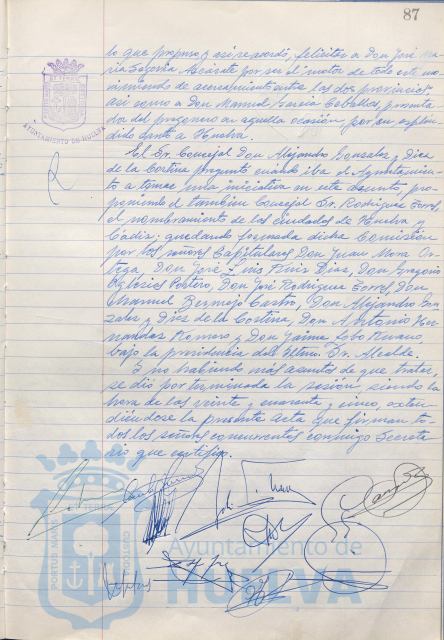 87
lo que propuso y así se acordó, felicitar a Don José Ma-
ría Segovia Azcárate por ser el motor de todo este mo-
vimiento de acercamiento entre las dos provincias
así como a Don Manuel García Ceballos, presenta-
do del pregonero en aquella ocasión, por su esplén-
dido canto a Huelva.
El Sr. Concejal Don Alejandro González y Díez
de la Cortina preguntó cuando iba el Ayuntamien-
to a tomar una iniciativa en este asunto, pro-
poniendo el también Concejal Sr. Rodríguez Torres,
el nombramiento de las ciudades de Huelva y
Cádiz; quedando formada dicha Comisión
por los señores Capitulares Don Juan Mora Or-
tega, Don José Luis Ruiz Díaz, Don Gregorio
Don José Rodríguez Torres, Don
Manuel Bermejo Castro, Don Alejandro Gon-
zález y Díez de la Cortina, Don Antonio Her-
nández Romero y Don Jaime Lobo
bajo la presidencia del Iltmo. Sr. Alcalde.
Y no habiendo más asuntos de que tratar,
se dio por terminada la sesión, siendo la
hora de las veinte y cuarenta y cinco, exten-
diéndose la presente Acta que firman to-
dos los señores concurrentes conmigo Secreta
rio que certifico.
AYUNTAMIENTO DE HUELVA
Ayuntamiento de
HUELVA
PORTUS MARIS